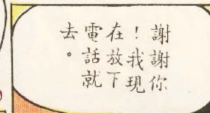 謝謝你
！我現
在放下
電話就
去。